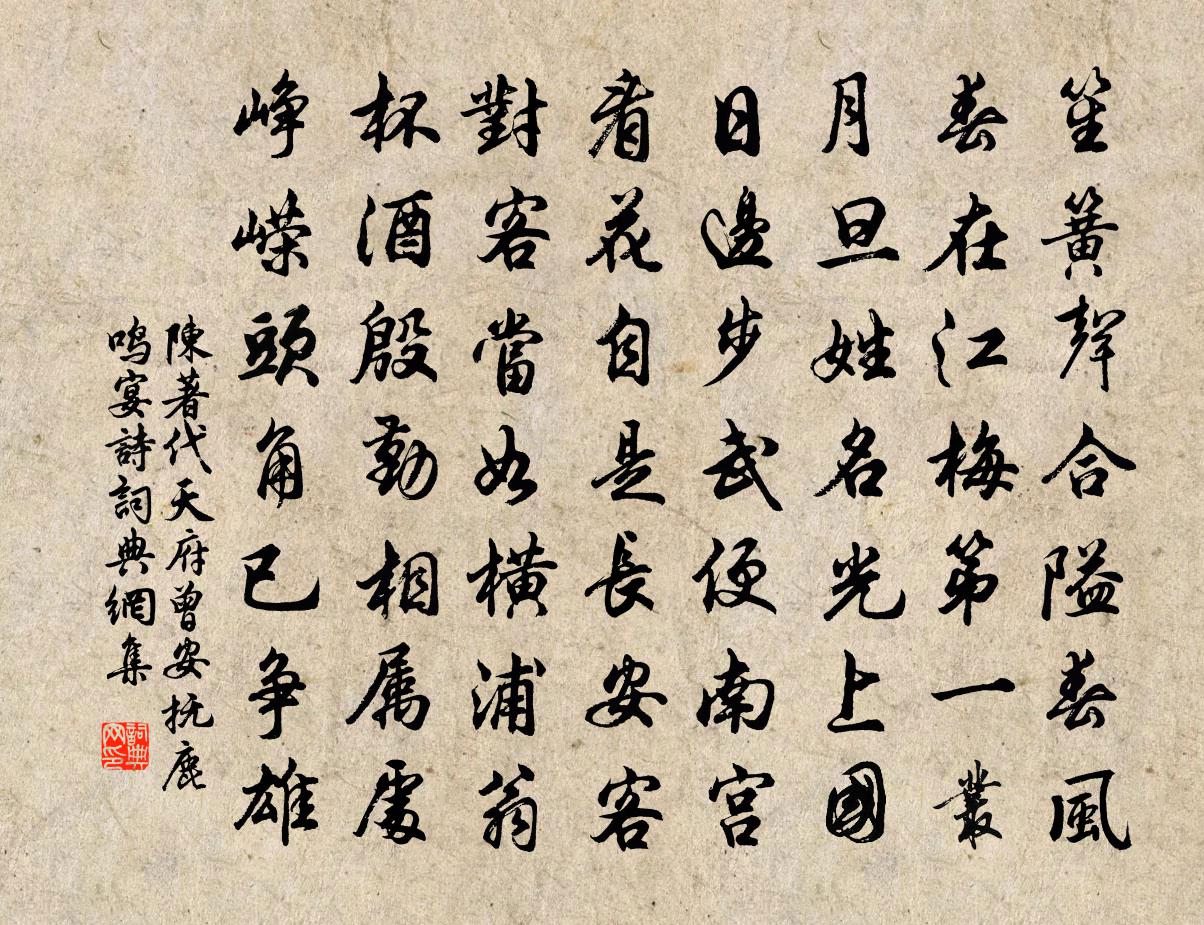 笙簧聲合隘春風
春在江梅第一叢
月旦姓名光上國
日邊步武便南宮
看花自是長安客
對客當如橫浦翁
杯酒殷勤相屬處
崢嶸頭角已爭雄
陳著代天府曾安撫鹿
鳴宴詩詞典網集
詞典網印